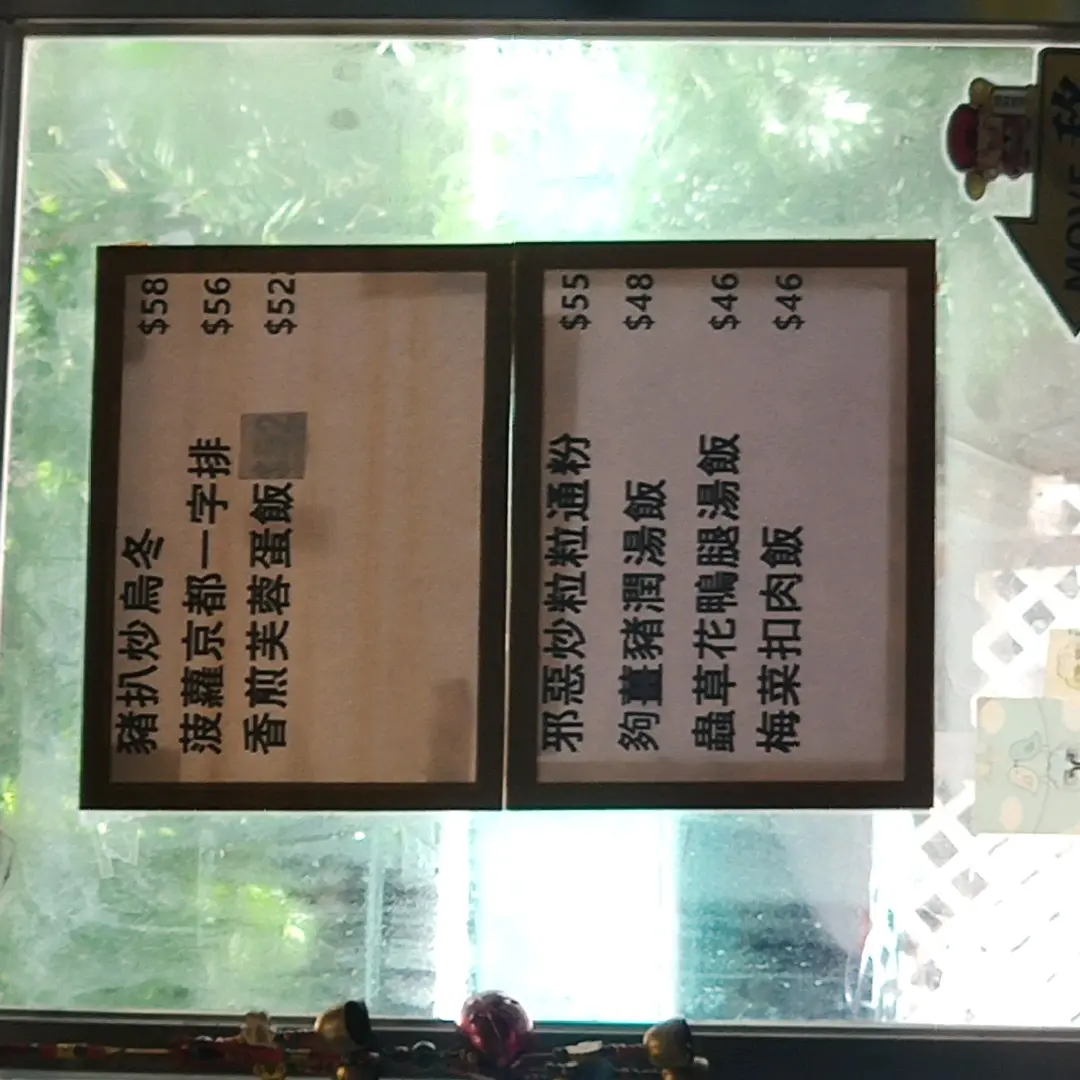 豬扒炒烏冬 $58
菠蘿京都一字排 $56
香煎芙蓉蛋飯 $52
邪惡炒粒粒通粉 $55
夠薑豬潤湯飯 $48
蟲草花鴨腿湯飯 $46
梅菜扣肉飯 $46
MOVE